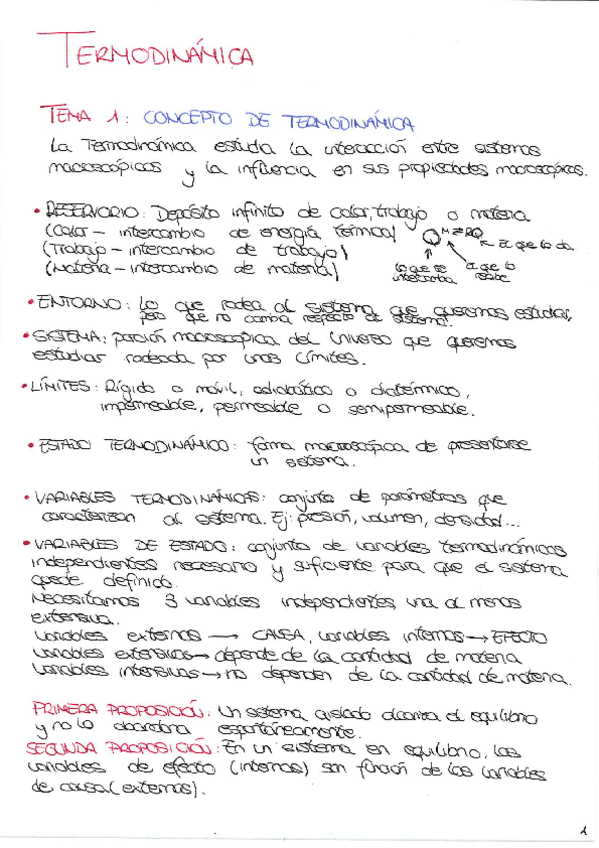 TERMODINÁMICA
TEMA 1: CONCEPTO DE TERMODINÁMICA
La Termodinámica estudia la interacción entre sistemas
macroscópicos y la influencia en sus propiedades macroscópicas.
• RESERVORIO: Depósito infinito de calor, trabajo o materia
(Calor – intercambio de energía térmica)
(Trabajo – intercambio de trabajo)
(Materia – intercambio de materia)
← El que lo da
lo que se intercambia
El que lo recibe
• ENTORNO: Lo que rodea al sistema que queremos estudiar,
pero que no cambia respecto de sistema.
• SISTEMA: porción macroscópica del Universo que queremos
estudiar rodeada por unos límites.
• LÍMITES: Rígido o móvil, adiabático o diatérmico,
impermeable, permeable o semipermeable.
• ESTADO TERMODINÁMICO: forma macroscópica de presentarse
un sistema.
• VARIABLES TERMODINÁMICAS: conjunto de parámetros que
caracterizan al sistema. Ej: presión, volumen, densidad...
• VARIABLES DE ESTADO: conjunto de variables termodinámicas
independientes necesario y suficiente para que el sistema
quede definido.
Necesitamos 3 variables independientes, una al menos
extensiva.
Variables externas → CAUSA, variables internas → EFECTO
Variables extensivas → depende de la cantidad de materia
Variables intensivas → no dependen de la cantidad de materia.
PRIMERA PROPOSICIÓN: Un sistema aislado alcanza el equilibrio
y no lo abandona espontáneamente.
SEGUNDA PROPOSICIÓN: En un sistema en equilibrio, las
variables de efecto (internas) son función de las variables
de causa (externas).
1